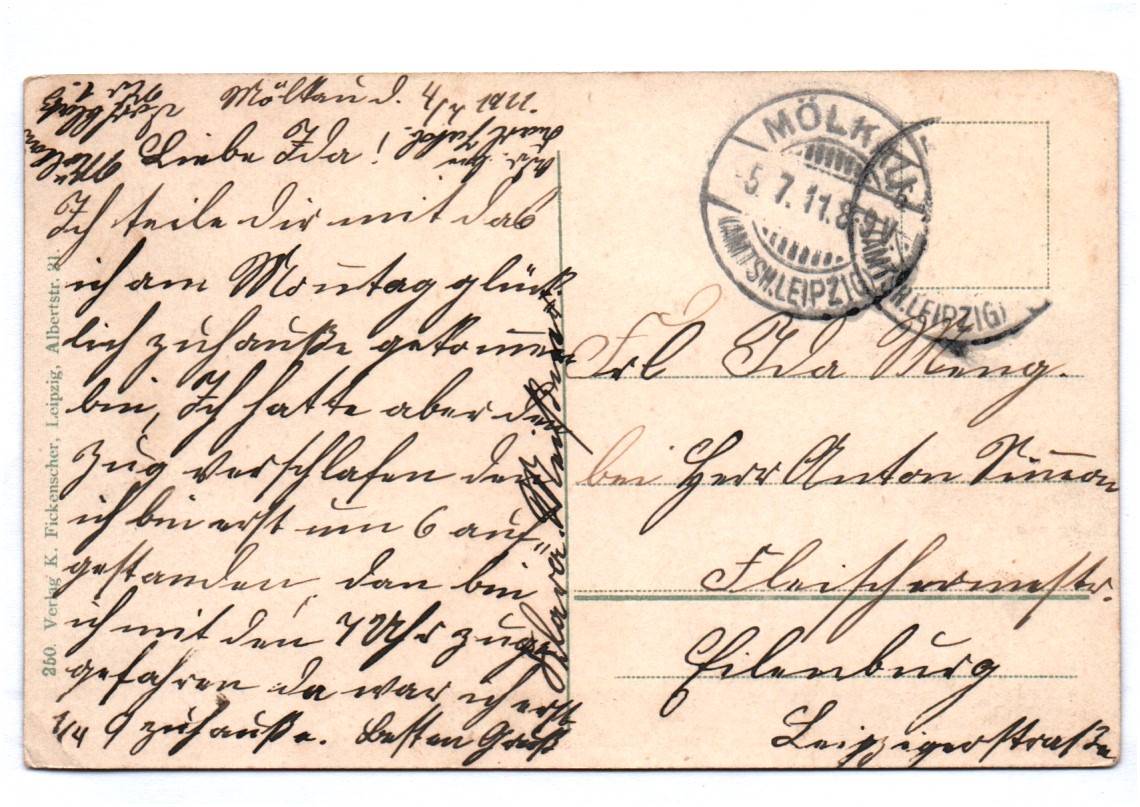 Mölkau d. 4/7 1911.
Liebe Ida!
Ich teile dir mit daß
ich am Montag glück
lich zuhauße gekommen
bin, Ich hatte aber den
Zug verschlafen den
ich bin erst um 6 auf"
gestanden, dan bin
ich mit den 7 Uhr zuge
gefahren da war ich erst
1/4 9 zuhauße. Besten Gruß
Clara
Mölkau
MÖLKAU
5.7.11.8-9V.
(AMTSH. LEIPZIG)
(AMTSH. LEIPZIG)
Frl Ida Meng.
bei Herr Anton Simon
Fleischermstr.
Eilenburg
Leipzigerstraße
250. Verlag K. Fickenscher, Leipzig, Albertstr. 21.